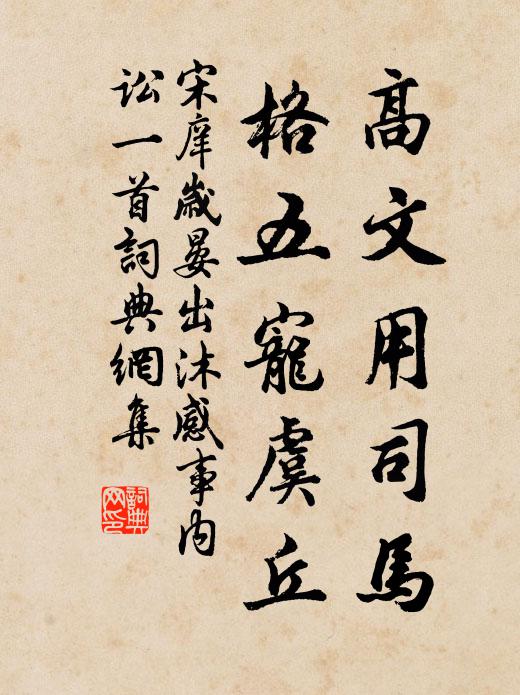 高文用司馬
格五寵虞丘
宋庠歲晏出沐感事內
訟一首詞典網集
詞典
网印